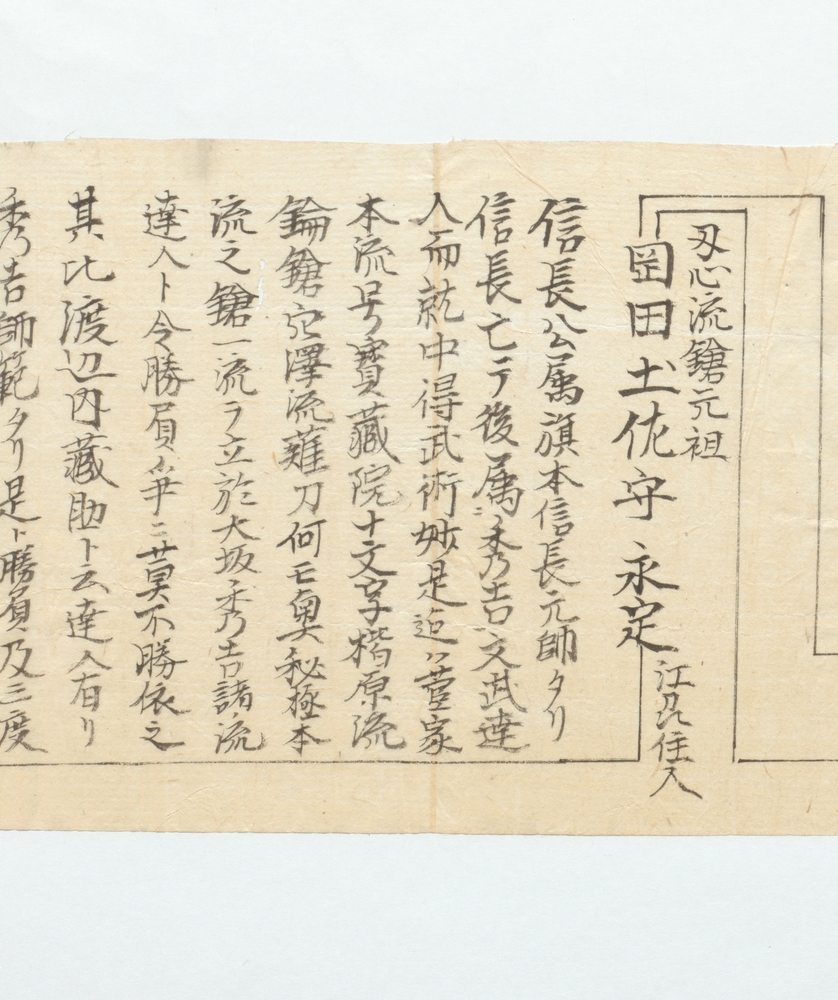 刄心流鎗元祖
岡田土佐守永定
江刕住人
信長公属旗本信長元師タリ
信長亡テ後属ニ秀吉文武達
人而就中得武術妙是迠ハ萱家
本流号寳藏院十文字楷原流
鑰鎗穴澤流薙刀何モ奥秘極本
流之鎗一流ヲ立於大坂秀吉諸流
達人ト令勝負ヿ爭ニ莫不勝依之
其比渡辺内藏助ト云達人有リ
秀吉師範タリ是ト勝負及三度